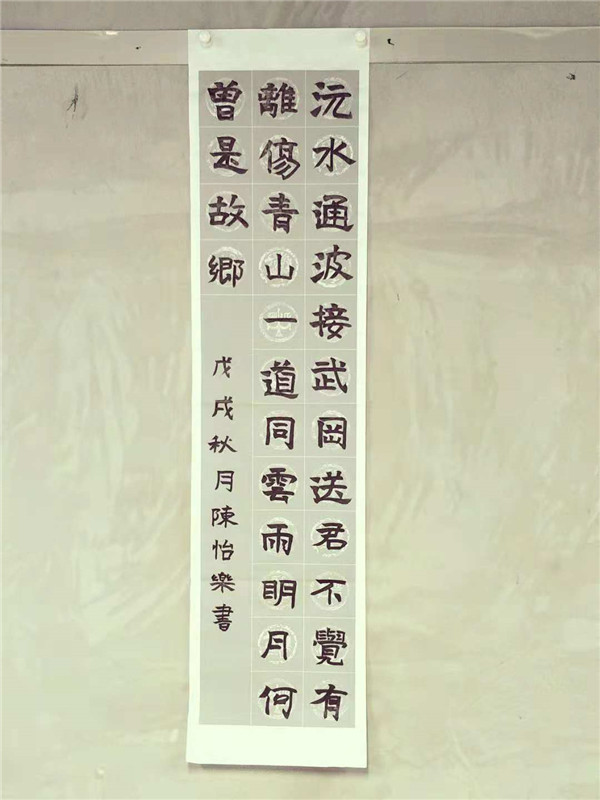 沅水通波接武岡送君不覺有
離傷青山一道同雲雨明月何
曾是故鄉
戊戌秋月陳怡樂書